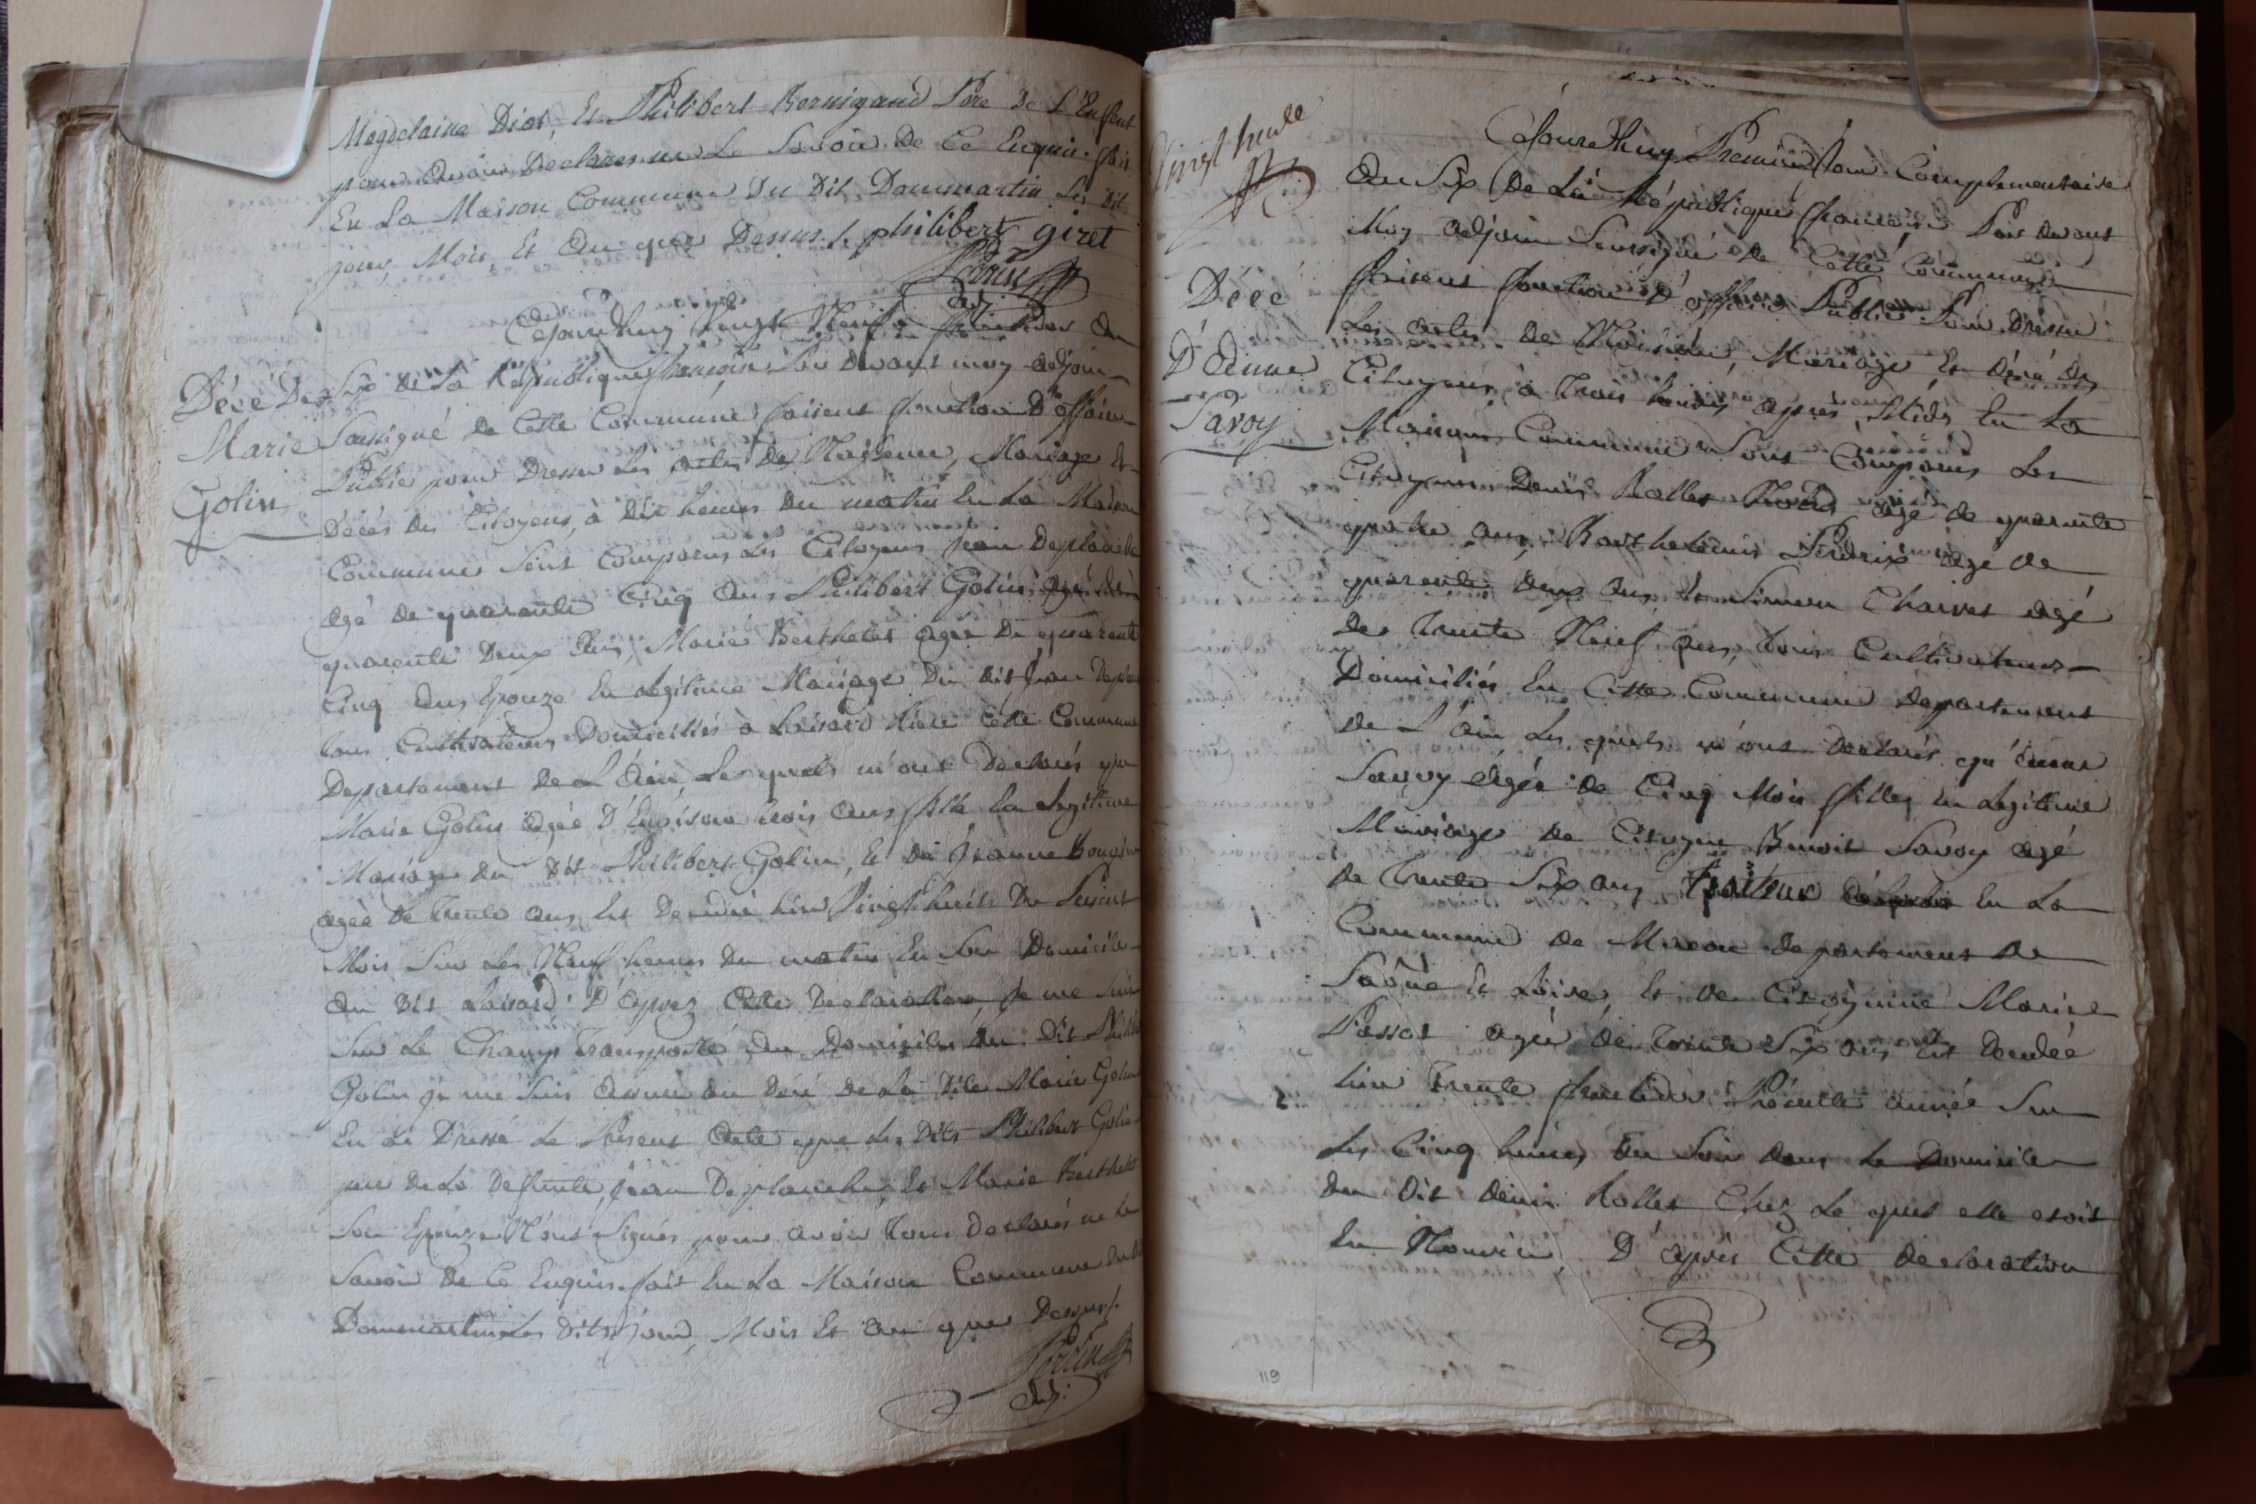 Magdelaine Diot, Et Philibert Bernigaud Pere de L'Enfant
pour avoir Declares ne Le Savoir De Ce Enquis. fait
En La Maison Commune Du Dit Dommartin Les dit
jour, Mois Et An que Dessus philibert giret
adj
Cejourdhuy Vingt Neuf fructidor An
Décé De Six de La République francoise Par devant moy adjoin
Marie Soussigné de Cette Commune faisent fonction D'officier
Golin Public pour Dresser Les actes de Naissence, Mariage Et
Décés des Citoyens, à Dix heures du matin En La Maison
Commune Sont Comparus Les Citoyens Jean Deplanche
agé de quarante Cinq Ans Philibert Golin agé de
quarente Deux Ans, Marie Berthelet agée De quarente
Cinq Ans Epouze En Legitime Mariage Du dit Jean
tous Cultivateurs Domiciliés à Loisard Rière Cette Commune
Departement De L'Ain, Lesquels m'ont Declarés que
Marie Golin agée D'Environ trois Ans fille En Legitime
Mariage du dit Philibert Golin, Et de Jeanne
agée de Trente ans Est Decedée hier Vingt huit Du Present
Mois Sur Les Neuf heures Du matin En Son Domicile
au dit Loisard. D'Apprez Cette Declaration, Je me Suis
Sur Le Champ Transporté au Domicile du Dit
Golin je me Suis Assuré du Décé de La Dite Marie Golin
En Ai Dressé Le Present Acte que Les Dits Philibert Golin
pere de La Deffunte, Jean Deplanche, Et Marie Berthelet
Son Epouze N'ont Signés pour avoir Tous Declarés ne Le
Savoir De Ce Enquis. fait En La Maison Commune Du
Dommartin Les Dits jour, Mois Et An que Dessus
adj:
Vingt huit
Cejourdhuy Premier Jour Complementaire
An Six De La République francoise Par devant
Moy adjoin Soussigné de Cette Commune
Décé faisent fonction D'officier Public Pour Dresser
D'Etienne Les actes de Naissence, Mariage Et décé des
Savoy Citoyens, à Trois heures apres Midy En La
Maison Commune Sont Comparus Les
Citoyens Denis Rollet agé de quarente
quatre ans, Barthelemis Perdrix agé de
quarente deux ans, Et Simeon Charvet agé
de Trente Neuf ans, tous Cultivateurs
Domiciliés En Cette Commune departement
de L'Ain Les quels m'ont Declarés
Savoy Agée de Cinq Mois fille En Legitime
Mariage de Citoyen Benoit Savoy agé
de Trente Six ans traiteur En La
Commune de Macon departement de
Saône Et Loire, Et de Citoyenne Marie
Passot agée de trente Six ans Est Decedée
hier Trente fructidor Présente année Sur
Les Cinq heures du Soir dans Le Domicile
du dit denis Rollet Chez Le quel elle etoit
En Nourice, D'après Cette declaration
119